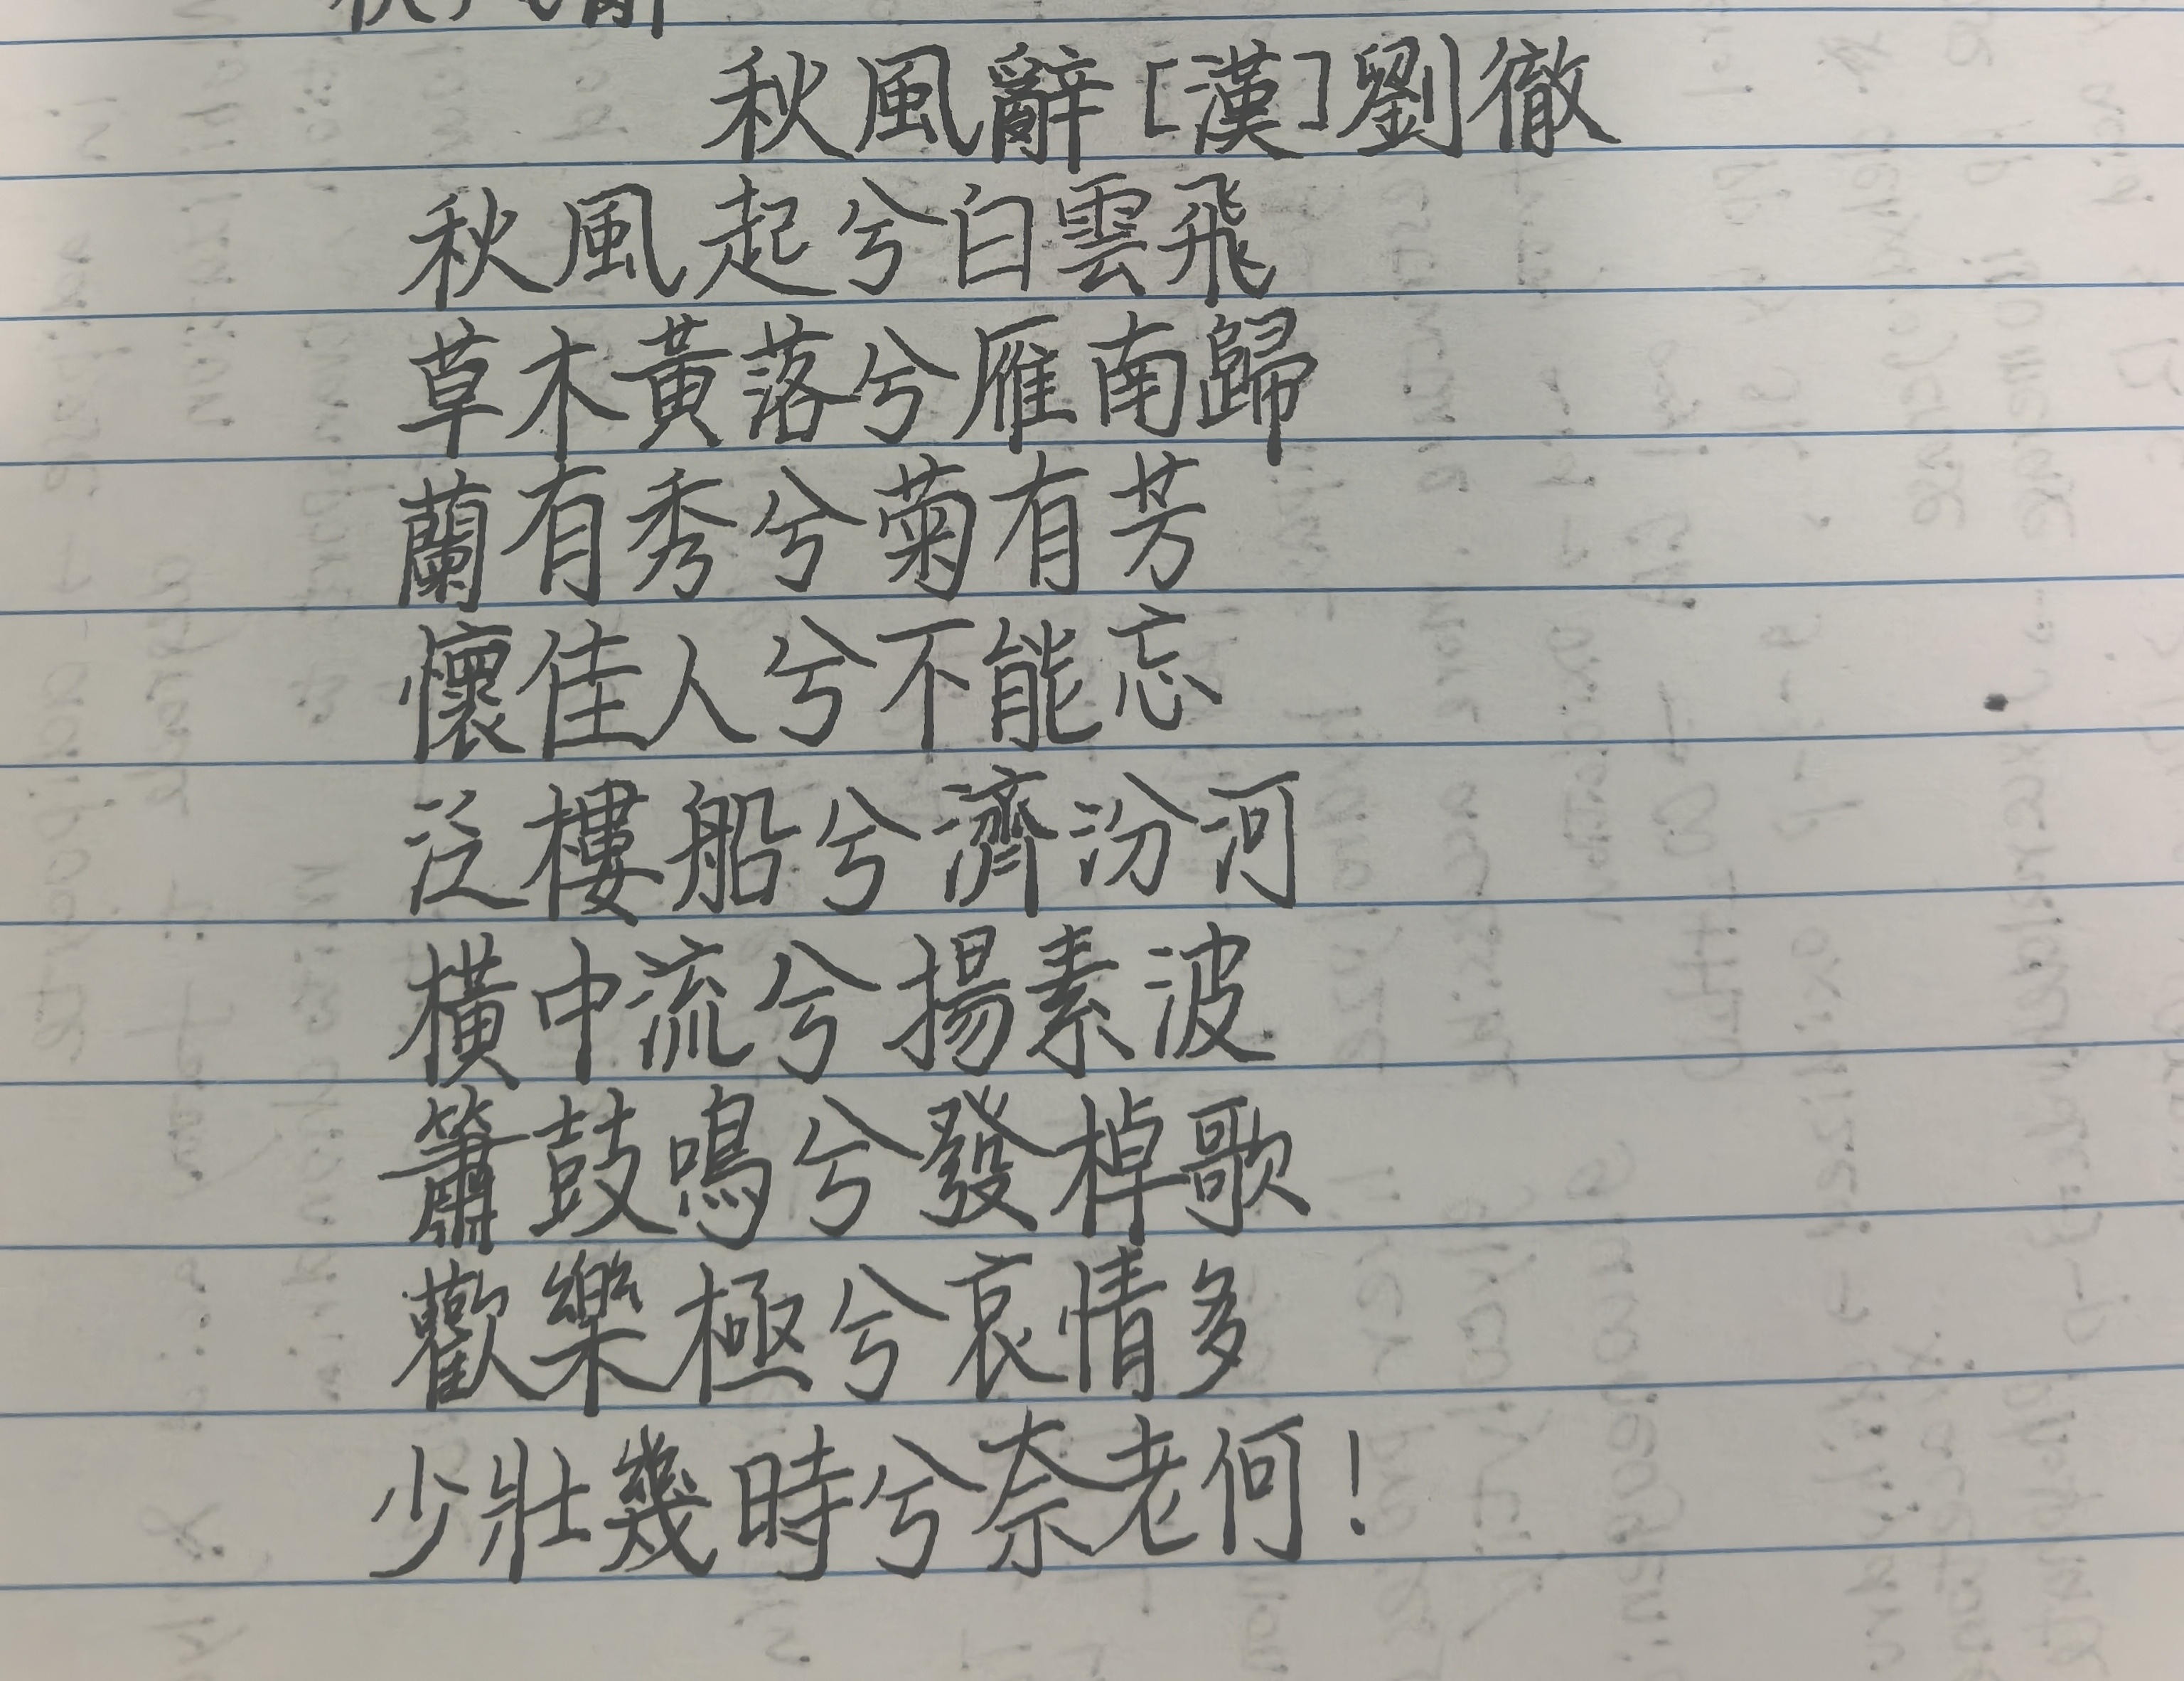 秋風辭
秋風辭[漢]劉徹
秋風起兮白雲飛
草木黃落兮雁南歸
蘭有秀兮菊有芳
懷佳人兮不能忘
泛樓船兮濟汾河
橫中流兮揚素波
簫鼓鳴兮發棹歌
歡樂極兮哀情多
少壯幾時兮奈老何!